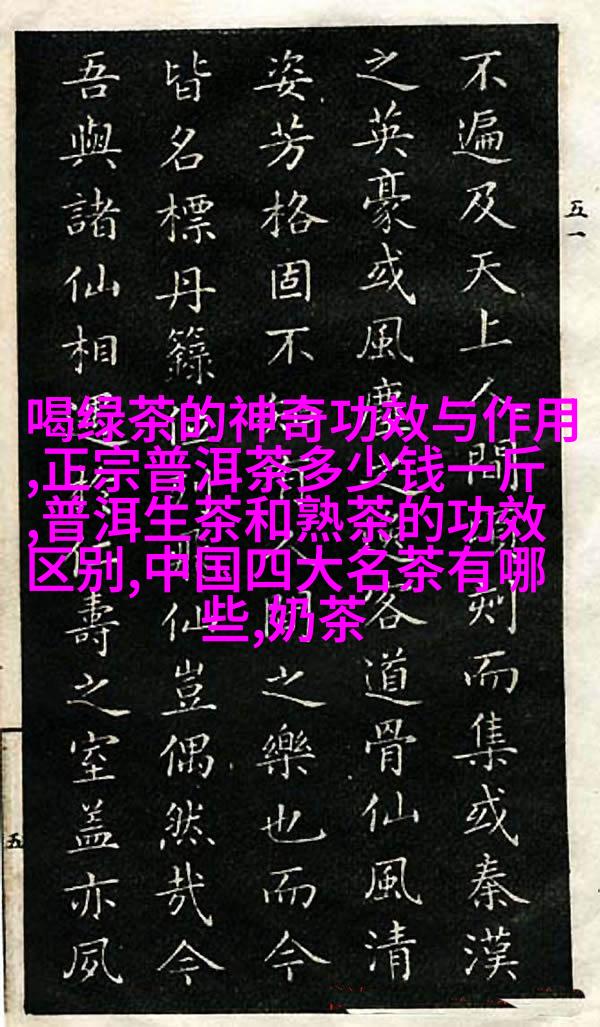 五一
不遍及天上人間刻而集或秦漢
之英豪或風塵之客道骨仙風清
姿芳格固不有人間之樂也而今
皆名標丹籙位列仙豈偶然哉今
吾與諸仙相遇於壽之室蓋亦夙
五
喝绿茶的神奇功效与作用
,正宗普洱茶多少钱一斤
,普洱生茶和熟茶的功效
区别,中国四大名茶有哪
些,奶茶